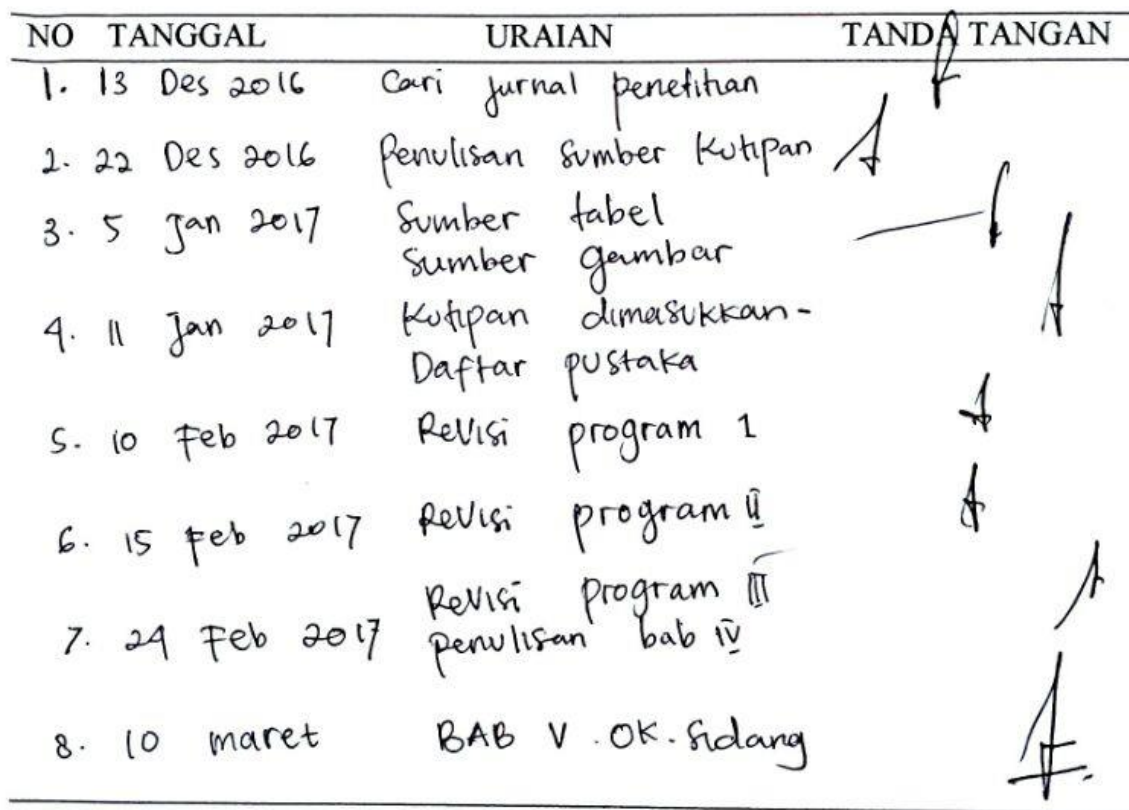 NO TANGGAL URAIAN TANDA TANGAN
1. 13 Des 2016 Cari jurnal penelitian
2. 22 Des 2016 Penulisan Sumber Kutipan
3. 5 Jan 2017 Sumber tabel
Sumber gambar
4. 11 Jan 2017 Kutipan dimasukkan-
Daftar pustaka
5. 10 Feb 2017 Revisi program 1
6. 15 Feb 2017 Revisi program II
Revisi program III
7. 24 Feb 2017 penulisan bab IV
8. 10 maret BAB V . OK. Sidang